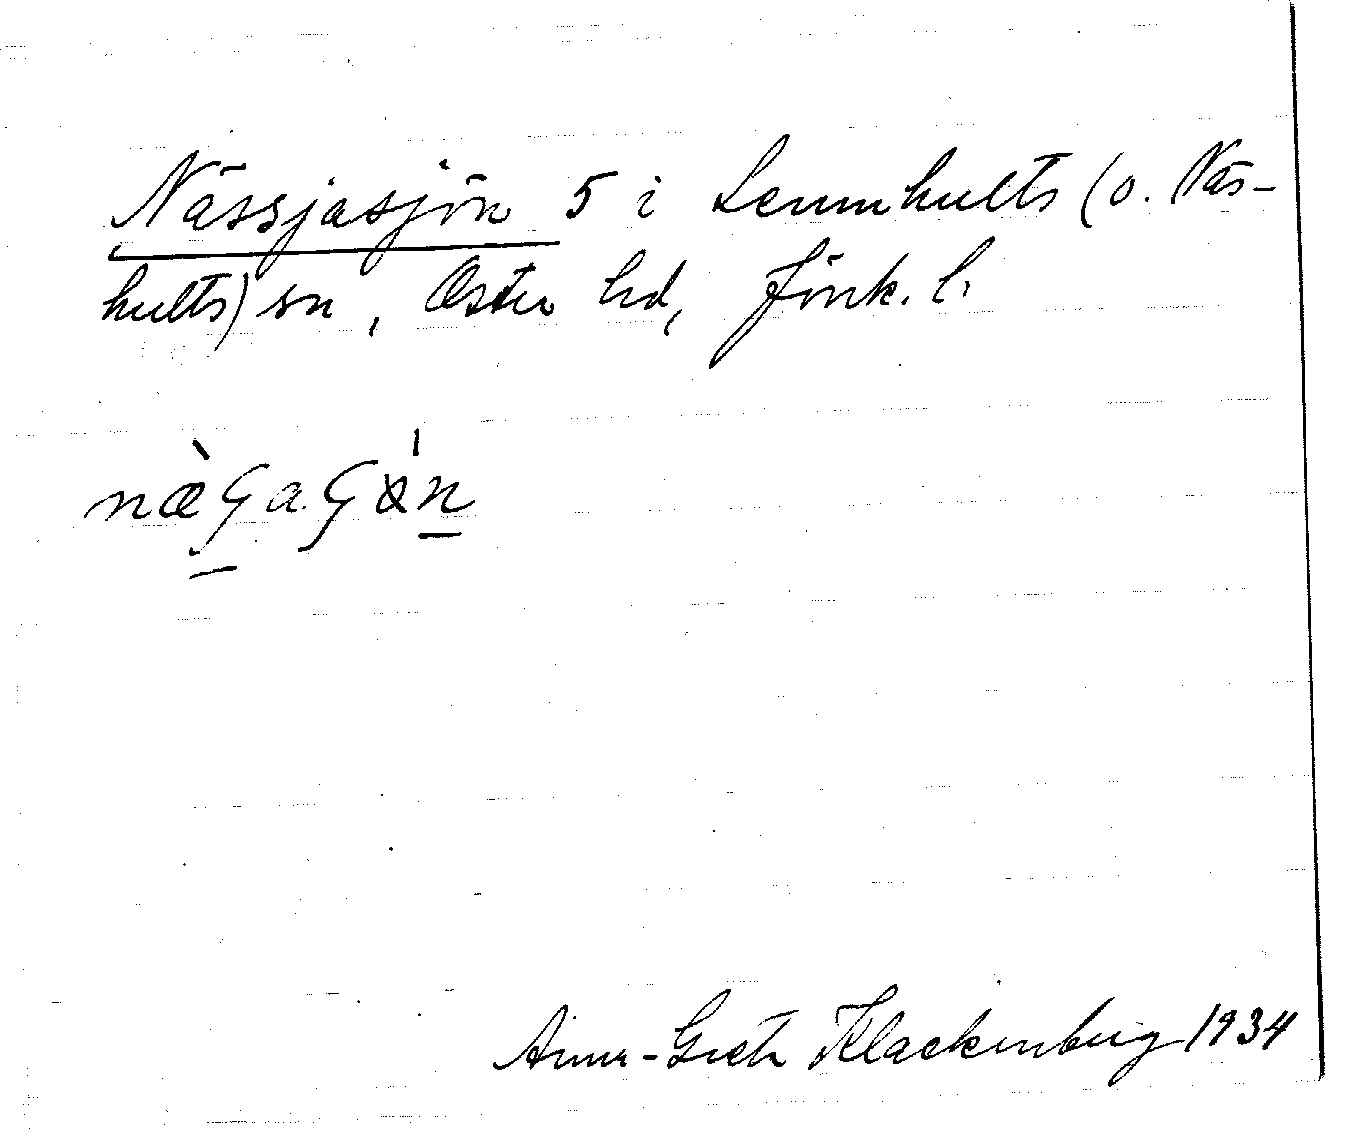 Nässjasjön 5 i Lemnhults (o. Näs-
hults) sn, Östra hd, Jönk. l.
Anna-Greta Klackenberg 1934